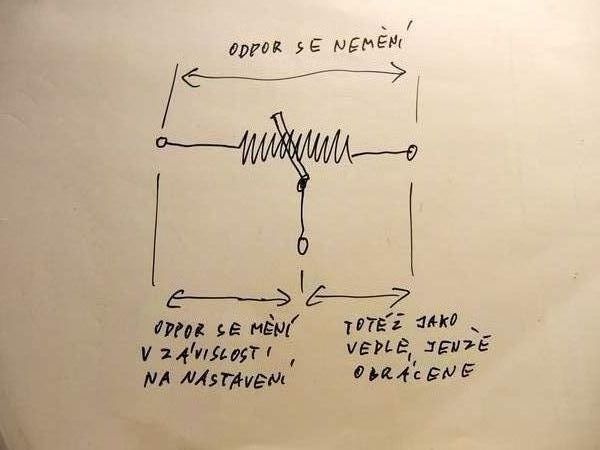 ODPOR SE NEMĚNÍ
ODPOR SE MĚNÍ
V ZÁVISLOSTI
NA NASTAVENÍ
TOTÉŽ JAKO
VEDLE, JENŽE
OBRÁCENE